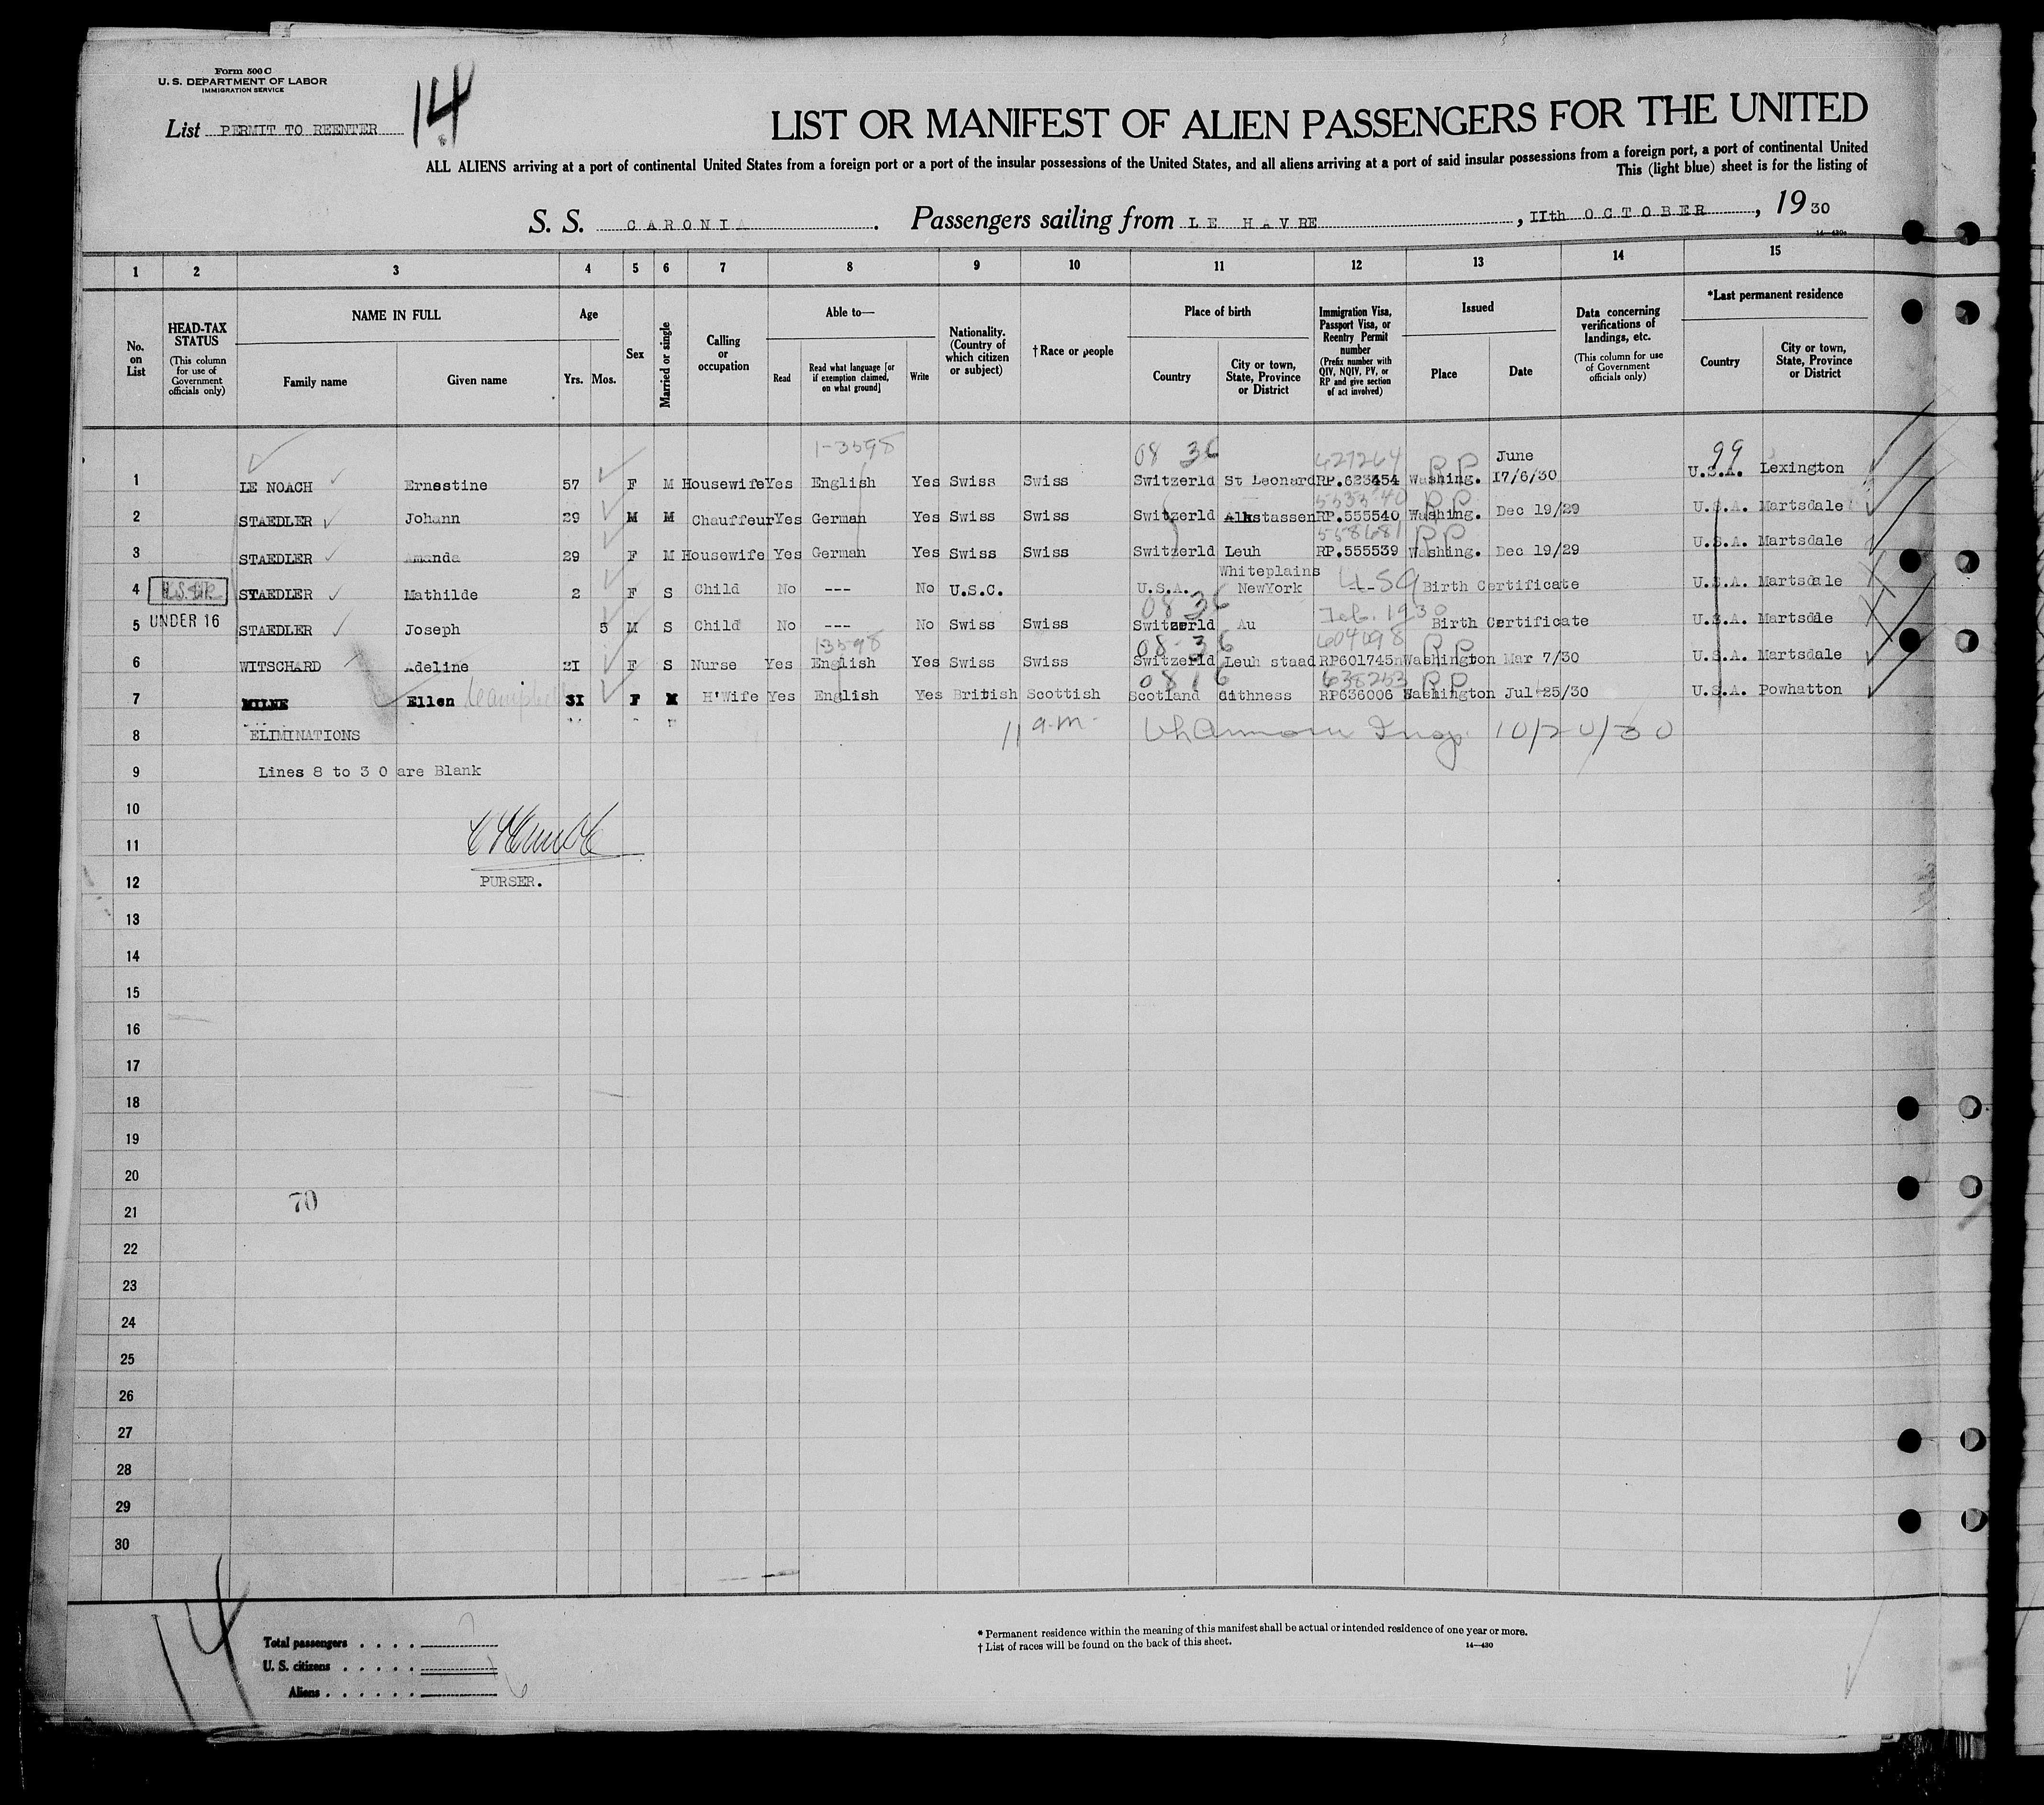 Form 500 C
U. S. DEPARTMENT OF LABOR
IMMIGRATION SERVICE
List PERMIT TO REENTER
14
LIST OR MANIFEST OF ALIEN PASSENGERS FOR THE UNITED
ALL ALIENS arriving at a port of continental United States from a foreign port or a port of the insular possessions of the United States, and all aliens arriving at a port of said insular possessions from a foreign port, a port of continental United
This (light blue) sheet is for the listing of
S. S. CARONIA. Passengers sailing from LE HAVRE, 11th OCTOBER, 1930
14—430a
1 2 3 4 5 6 7 8 9 10 11 12 13 14 15
No. on List
HEAD-TAX STATUS (This column for use of Government officials only)
NAME IN FULL Family name Given name
Age Yrs. Mos.
Sex
Married or single
Calling or occupation
Able to— Read Read what language [or if exemption claimed, on what ground] Write
Nationality. (Country of which citizen or subject)
†Race or people
Place of birth Country City or town, State, Province or District
Immigration Visa, Passport Visa, or Reentry Permit number (Prefix number with QIV, NQIV, PV, or RP and give section of act involved)
Issued Place Date
Data concerning verifications of landings, etc. (This column for use of Government officials only)
*Last permanent residence Country City or town, State, Province or District
1-3598 08 36 627264 RP June 99
1 LE NOACH Ernestine 57 F M Housewife Yes English Yes Swiss Swiss Switzerld St Leonard RP.623454 Washing. 17/6/30 U.S.A. Lexington
553540 RP
2 STAEDLER Johann 29 M M Chauffeur Yes German Yes Swiss Swiss Switzerld Alkstassen RP.555540 Washing. Dec 19/29 U.S.A. Martsdale
558681 RP
3 STAEDLER Amanda 29 F M Housewife Yes German Yes Swiss Swiss Switzerld Leuh RP.555539 Washing. Dec 19/29 U.S.A. Martsdale
4 STAEDLER Mathilde 2 F S Child No --- No U.S.C. U.S.A. Whiteplains NewYork --- 459 Birth Certificate U.S.A. Martsdale
08 36 Feb. 1930
5 UNDER 16 STAEDLER Joseph 5 M S Child No --- No Swiss Swiss Switzerld Au Birth Certificate U.S.A. Martsdle
13598 08 36 604098 RP
6 WITSCHARD Adeline 21 F S Nurse Yes English Yes Swiss Swiss Switzerld Leuh staad RP601745 Washington Mar 7/30 U.S.A. Martsdale
08 16 638253 RP
7 MILNE Ellen Campbell 31 F M H'Wife Yes English Yes British Scottish Scotland Caithness RP636006 Washington Jul 25/30 U.S.A. Powhatton
8 ELIMINATIONS 11 a.m. Insp. 10/20/30
9 Lines 8 to 30 are Blank
10
11
12 PURSER.
13
14
15
16
17
18
19
20
70
21
22
23
24
25
26
27
28
29
30
14
Total passengers . . . . 7
U. S. citizens . . . . . 1
Aliens . . . . . . 6
* Permanent residence within the meaning of this manifest shall be actual or intended residence of one year or more.
† List of races will be found on the back of this sheet.
14—430